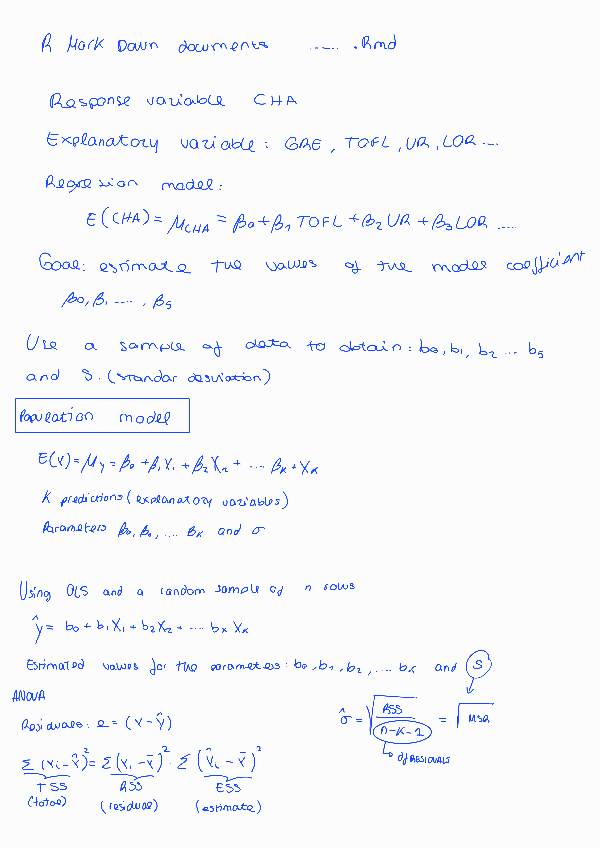 R Mark Down documents ...... .Rmd
Response variable CHA
Explanatory variable: GRE, TOFL, UR, LOR ...
Regression model:
E(CHA) = μ_CHA = β0 + β1 TOFL + β2 UR + β3 LOR .....
Goal: estimate the values of the model coefficient
β0, β1 ...., β5
Use a sample of data to obtain: b0, b1, b2 ... b5
and S. (standar desviation)
Population model
E(Y) = μy = β0 + β1X1 + β2X2 + .... βK + XK
K predictions (explanatory variables)
Parameters β0, β0, .... βK and σ
Using OLS and a random sample of n rows
ŷ = b0 + b1X1 + b2X2 + .... bK XK
Estimated values for the parameters: b0, b1, b2, .... bK and S
ANOVA
Residuals: e = (Y - Ŷ)
σ̂ = √(RSS / n-K-1) = √MSR
df RESIDUALS
Σ (Yi - Ŷ)² = Σ (Yi - Ȳ)² · Σ (Ŷi - Ȳ)²
TSS RSS ESS
(total) (residual) (estimate)